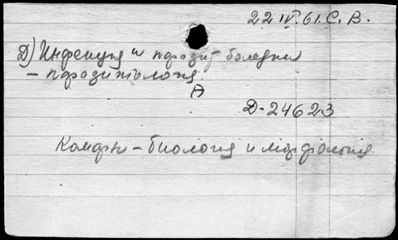 22 IV. 61. С. В.
Д) Инфекция и паразит болезни
– паразитология
А
Д-24623
– биология и морфология